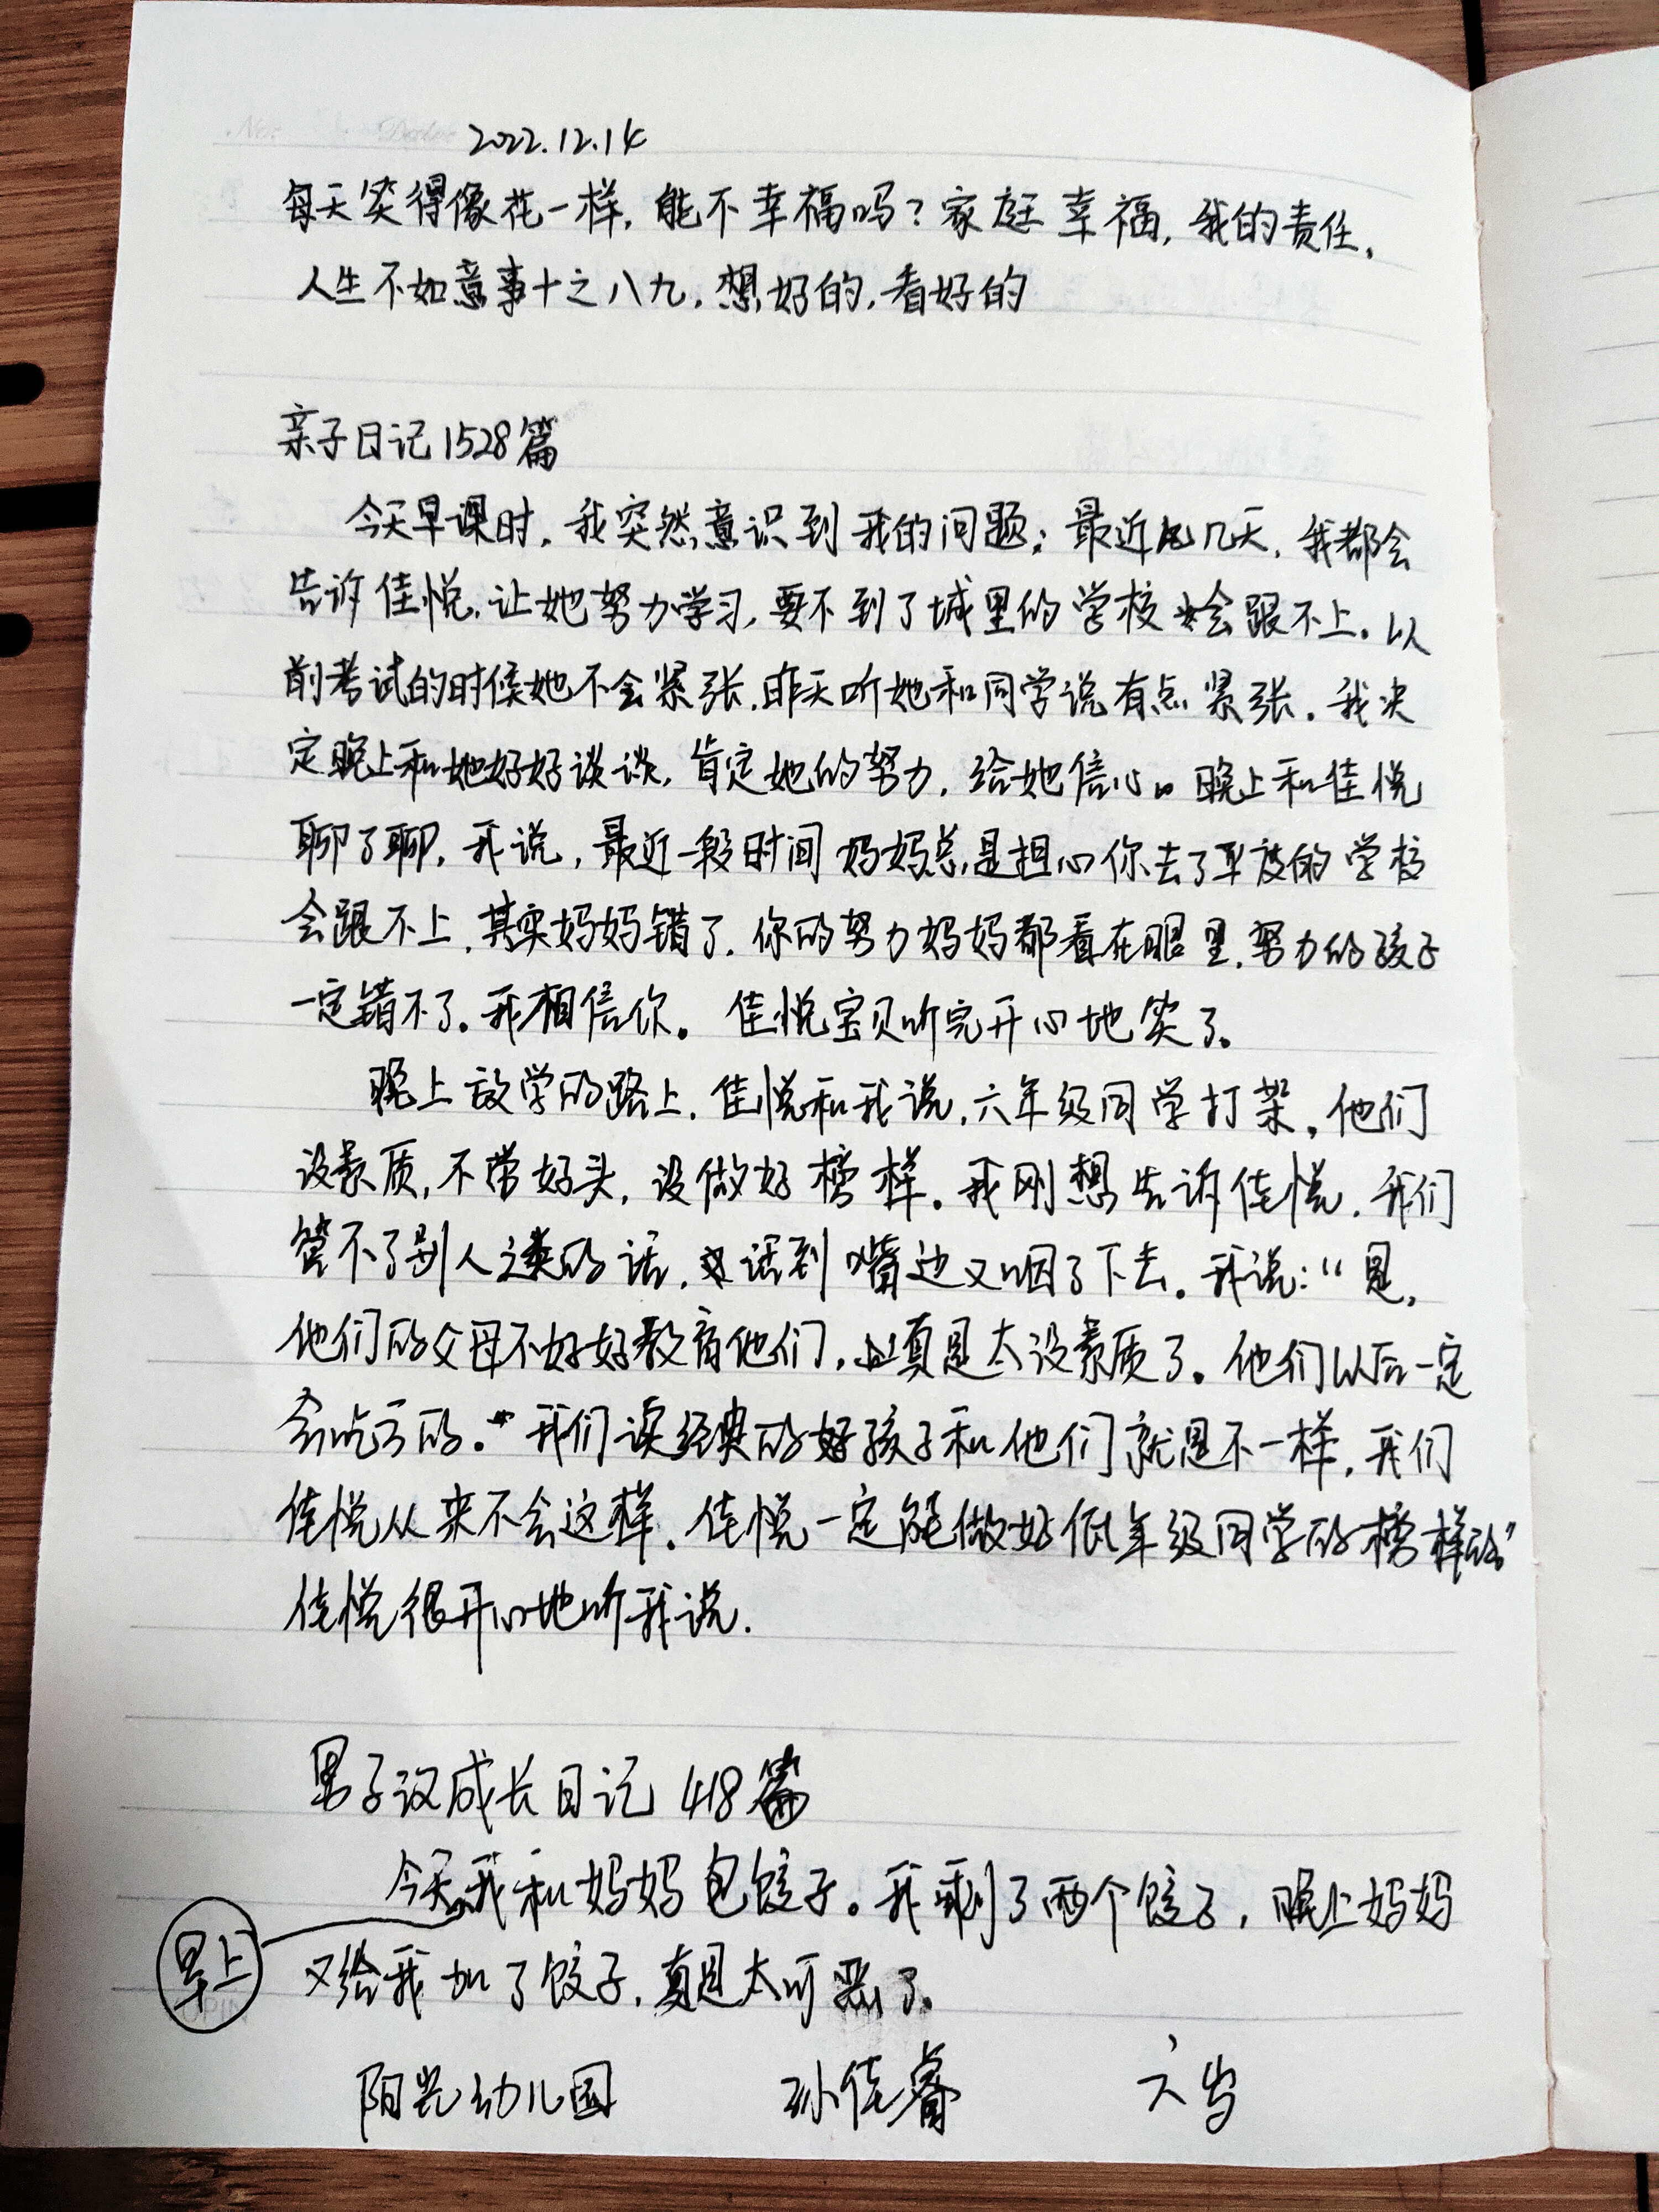 No. Date 2022.12.14
每天笑得像花一样，能不幸福吗？家庭幸福，我的责任，
人生不如意事十之八九，想好的，看好的
亲子日记1528篇
今天早课时，我突然意识到我的问题；最近几天，我都会
告诉佳悦，让她努力学习，要不到了城里的学校会跟不上。以
前考试的时候她不会紧张，昨天听她和同学说有点紧张。我决
定晚上和她好好谈谈，肯定她的努力，给她信心。晚上和佳悦
聊了聊，我说，最近一段时间妈妈总是担心你去了平度的学校
会跟不上，其实妈妈错了，你的努力妈妈都看在眼里，努力的孩子
一定错不了。我相信你。佳悦宝贝听完开心地笑了。
晚上放学的路上，佳悦和我说，六年级同学打架，他们
没素质，不带好头，没做好榜样。我刚想告诉佳悦，我们
管不了别人之类的话，话到嘴边又咽了下去。我说：“是，
他们的父母不好好教育他们，真是太没素质了。他们以后一定
会吃亏的。”我们读经典的好孩子和他们就是不一样，我们
佳悦从来不会这样，佳悦一定能做好低年级同学的榜样的”
佳悦很开心地听我说．
男子汉成长日记 418篇
今天我和妈妈包饺子。我剩了两个饺子，晚上妈妈
早上
又给我加了饺子，真是太可恶了。
阳光幼儿园 孙佳睿 六岁